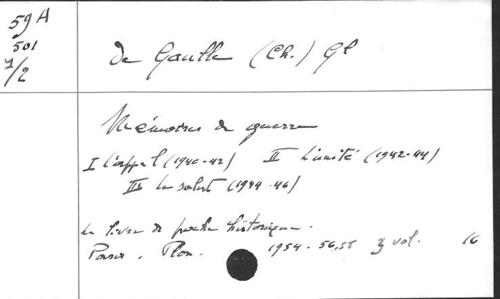 59 A
501
1/2
De Gaulle (Ch.) Gl
Mémoires de guerre
I L'appel (1940-42) II L'unité (1942-44)
III Le salut (1944-46)
Le livre de poche historique.
Paris, Plon. 1954-56, 3 vol. 16